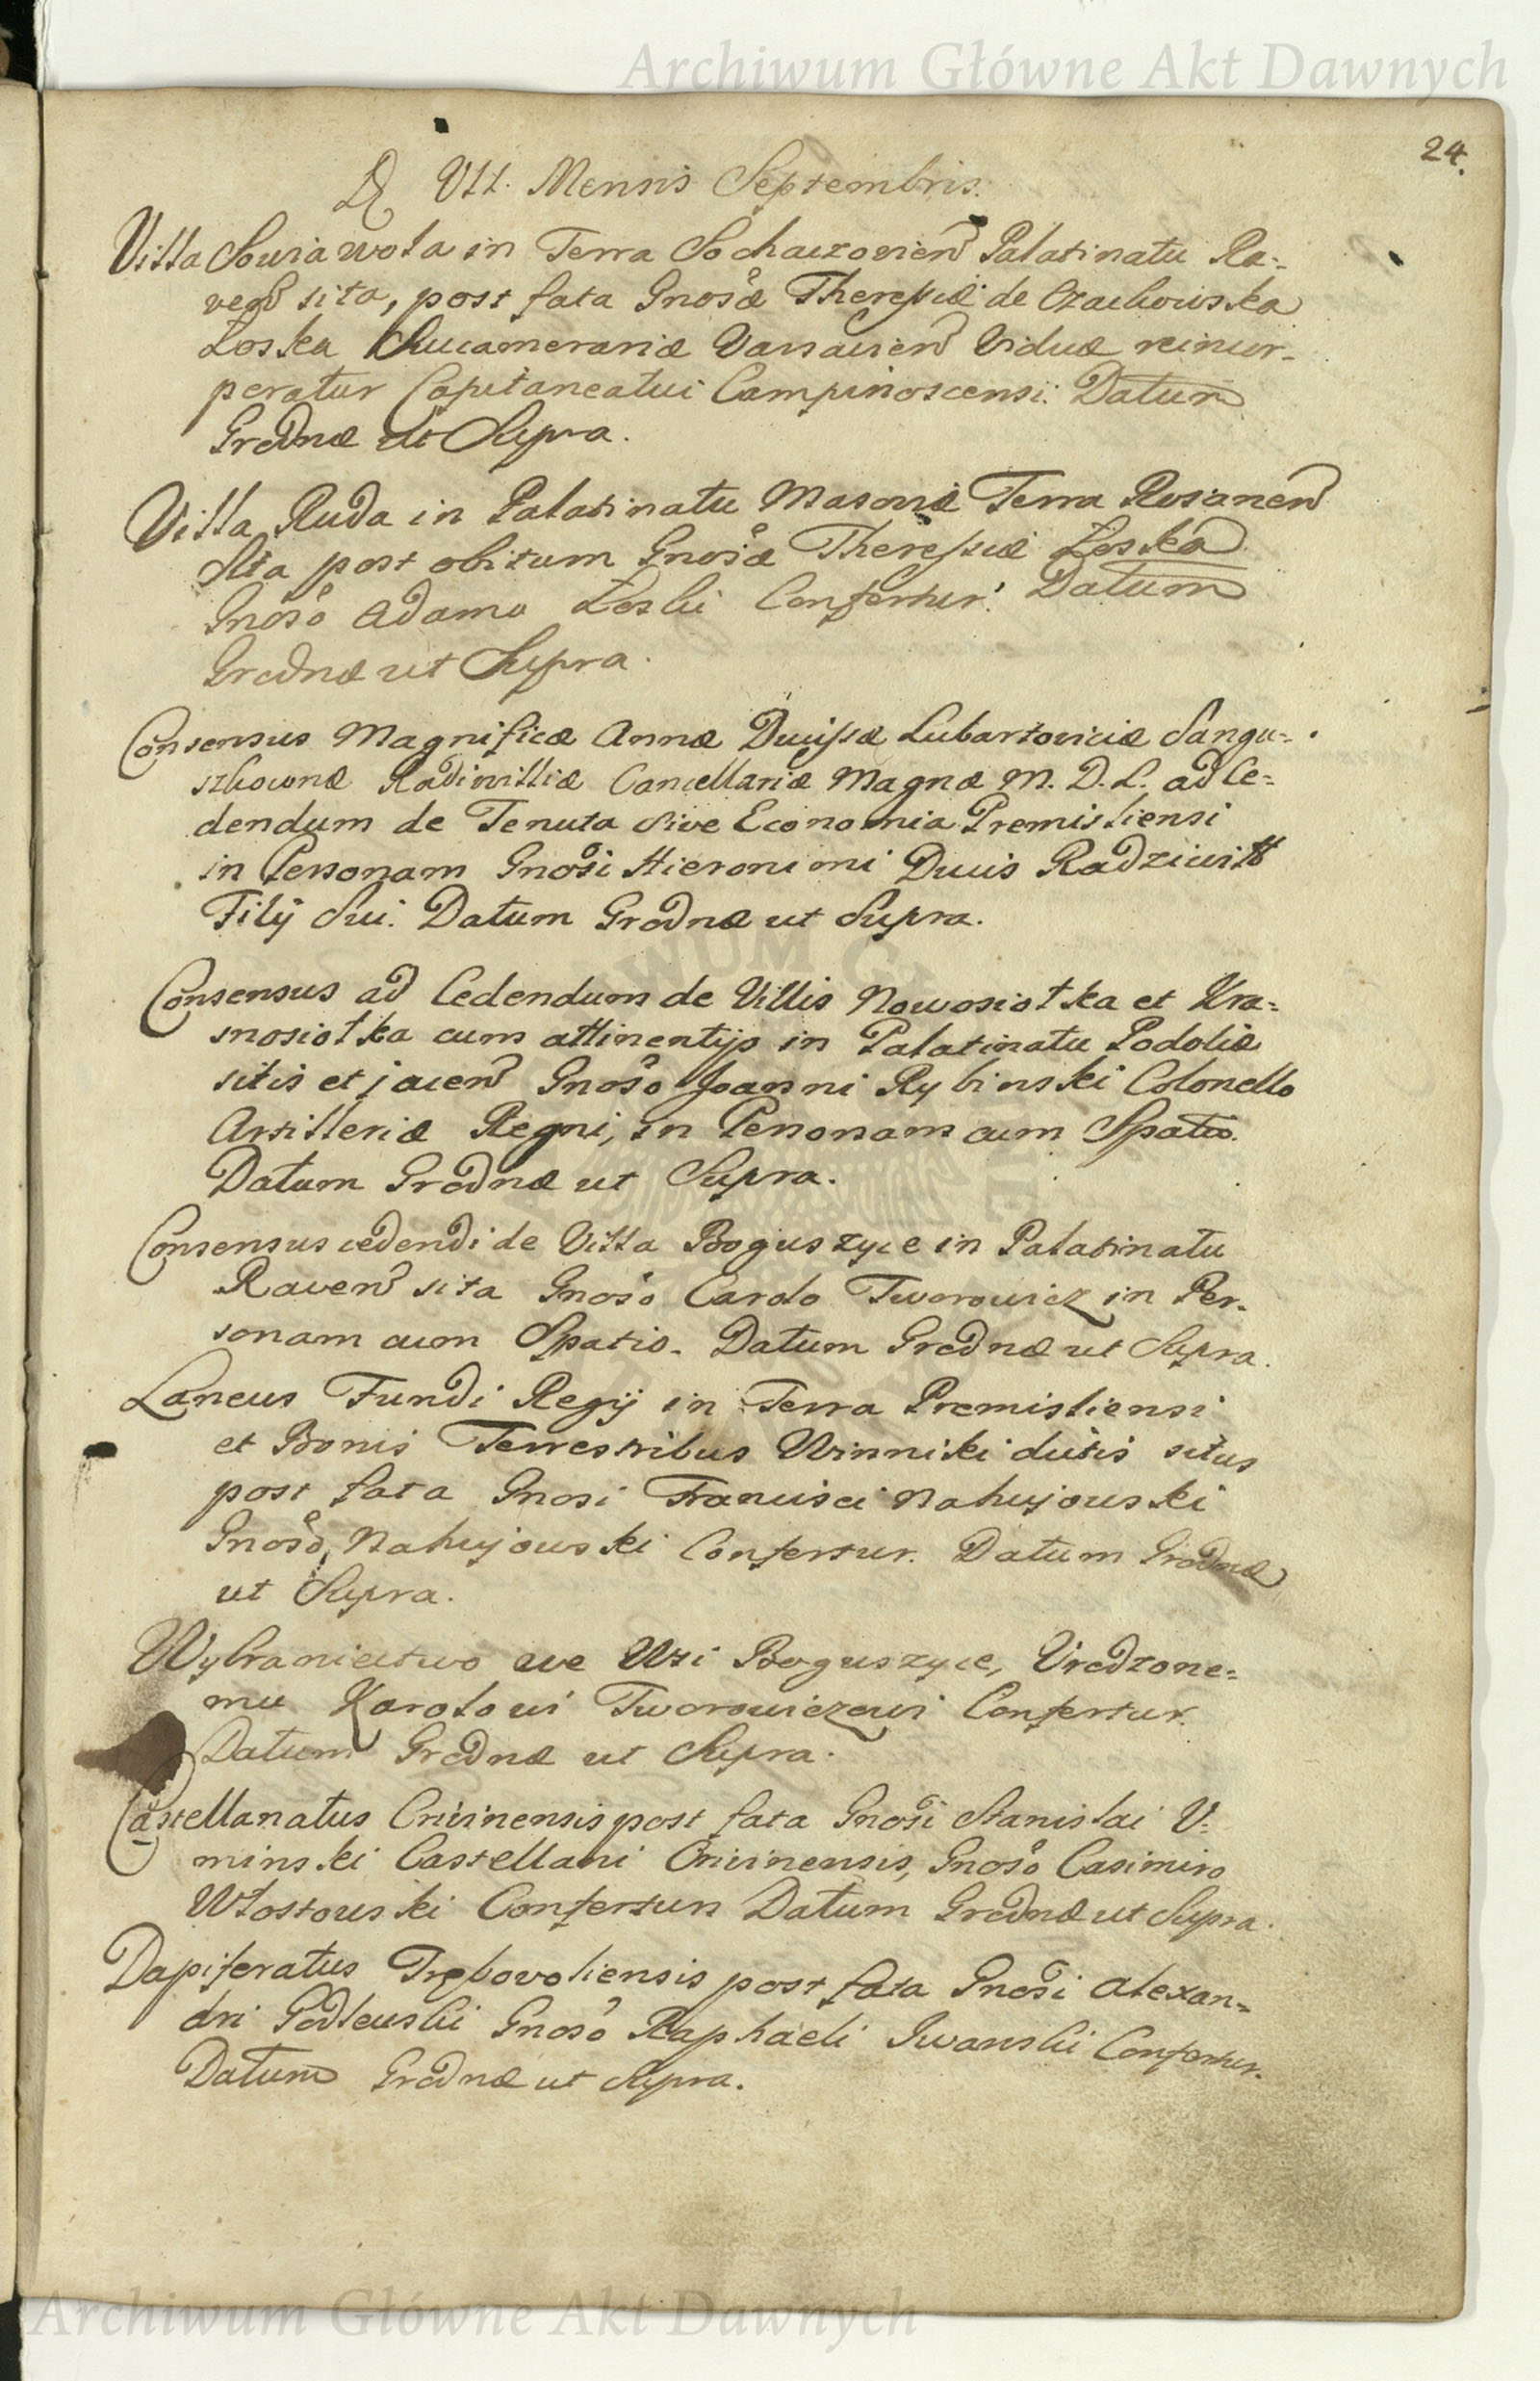 Archiwum Główne Akt Dawnych
24.
D. VII. Mensis Septembris.
Villa Sowia wola in Terra Sochaczovien Palatinatu Ra=
ven sita, post fata Gnosæ Theressiæ de Czachowska
Łoska Succamerariæ Varsavien Viduæ reincor-
poratur Capitaneatui Campinoscensi. Datum
Grodnæ ut Supra.
Villa Ruda in Palatinatu Masoviæ Terra Rosanen
Sita post obitum Gnosæ Theressiæ Łoska
Gnoso Adamo Łoski Confertur. Datum
Grodnæ ut Supra.
Consensus Magnificæ Annæ Ducissæ Lubartoviciæ Sangu=
szkownæ Radiwilliæ Cancellariæ Magnæ M. D. L. ad Ce=
dendum de Tenuta sive Economia Premisliensi
in Personam Gnosi Hieronimi Ducis Radziwiłł
Filij Sui. Datum Grodnæ ut Supra.
Consensus ad Cedendum de Villis Nowosiołka et Kra=
snosiołka cum attinentijs in Palatinatu Podoliæ
sitis et jacen Gnoso Joanni Rybinski Colonello
Artilleriæ Regni, in Personam cum Spatio.
Datum Grodnæ ut Supra.
Consensus cedendi de Villa Boguszyce in Palatinatu
Raven sita Gnoso Carolo Tworowicz in Per-
sonam cum Spatio. Datum Grodnæ ut Supra.
Laneus Fundi Regij in Terra Premisliensi
et Bonis Terrestribus Winniki dictis situs
post fata Gnosi Francisci Nahujowski
Gnoso, Nahujowski Confertur. Datum Grodnæ
ut Supra.
Wybraniectwo we Wsi Boguszyce, Urodzone=
mu Karolowi Tworowiczowi Confertur.
Datum Grodnæ ut Supra.
Castellanatus Crivinensis post fata Gnosi Stanislai U=
minski Castellani Crivinensis, Gnoso Casimiro
Włostowski Confertur. Datum Grodnæ ut Supra.
Dapiferatus Trębovoliensis post fata Gnosi Alexan=
dri Godlewski Gnoso Raphaeli Iwanski Confertur.
Datum Grodnæ ut Supra.
Archiwum Główne Akt Dawnych